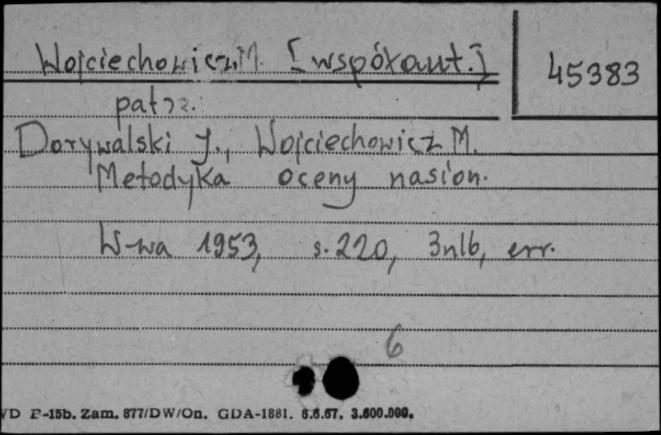 Wojciechowicz M. [współaut.]
45383
patrz.
Dorywalski J., Wojciechowicz M.
Metodyka oceny nasion.
W-wa 1953, s. 220, 3nlb, err.
6
D P-15b. Zam. 877/DW/On. GDA-1881. 6.6.67. 3.600.000.